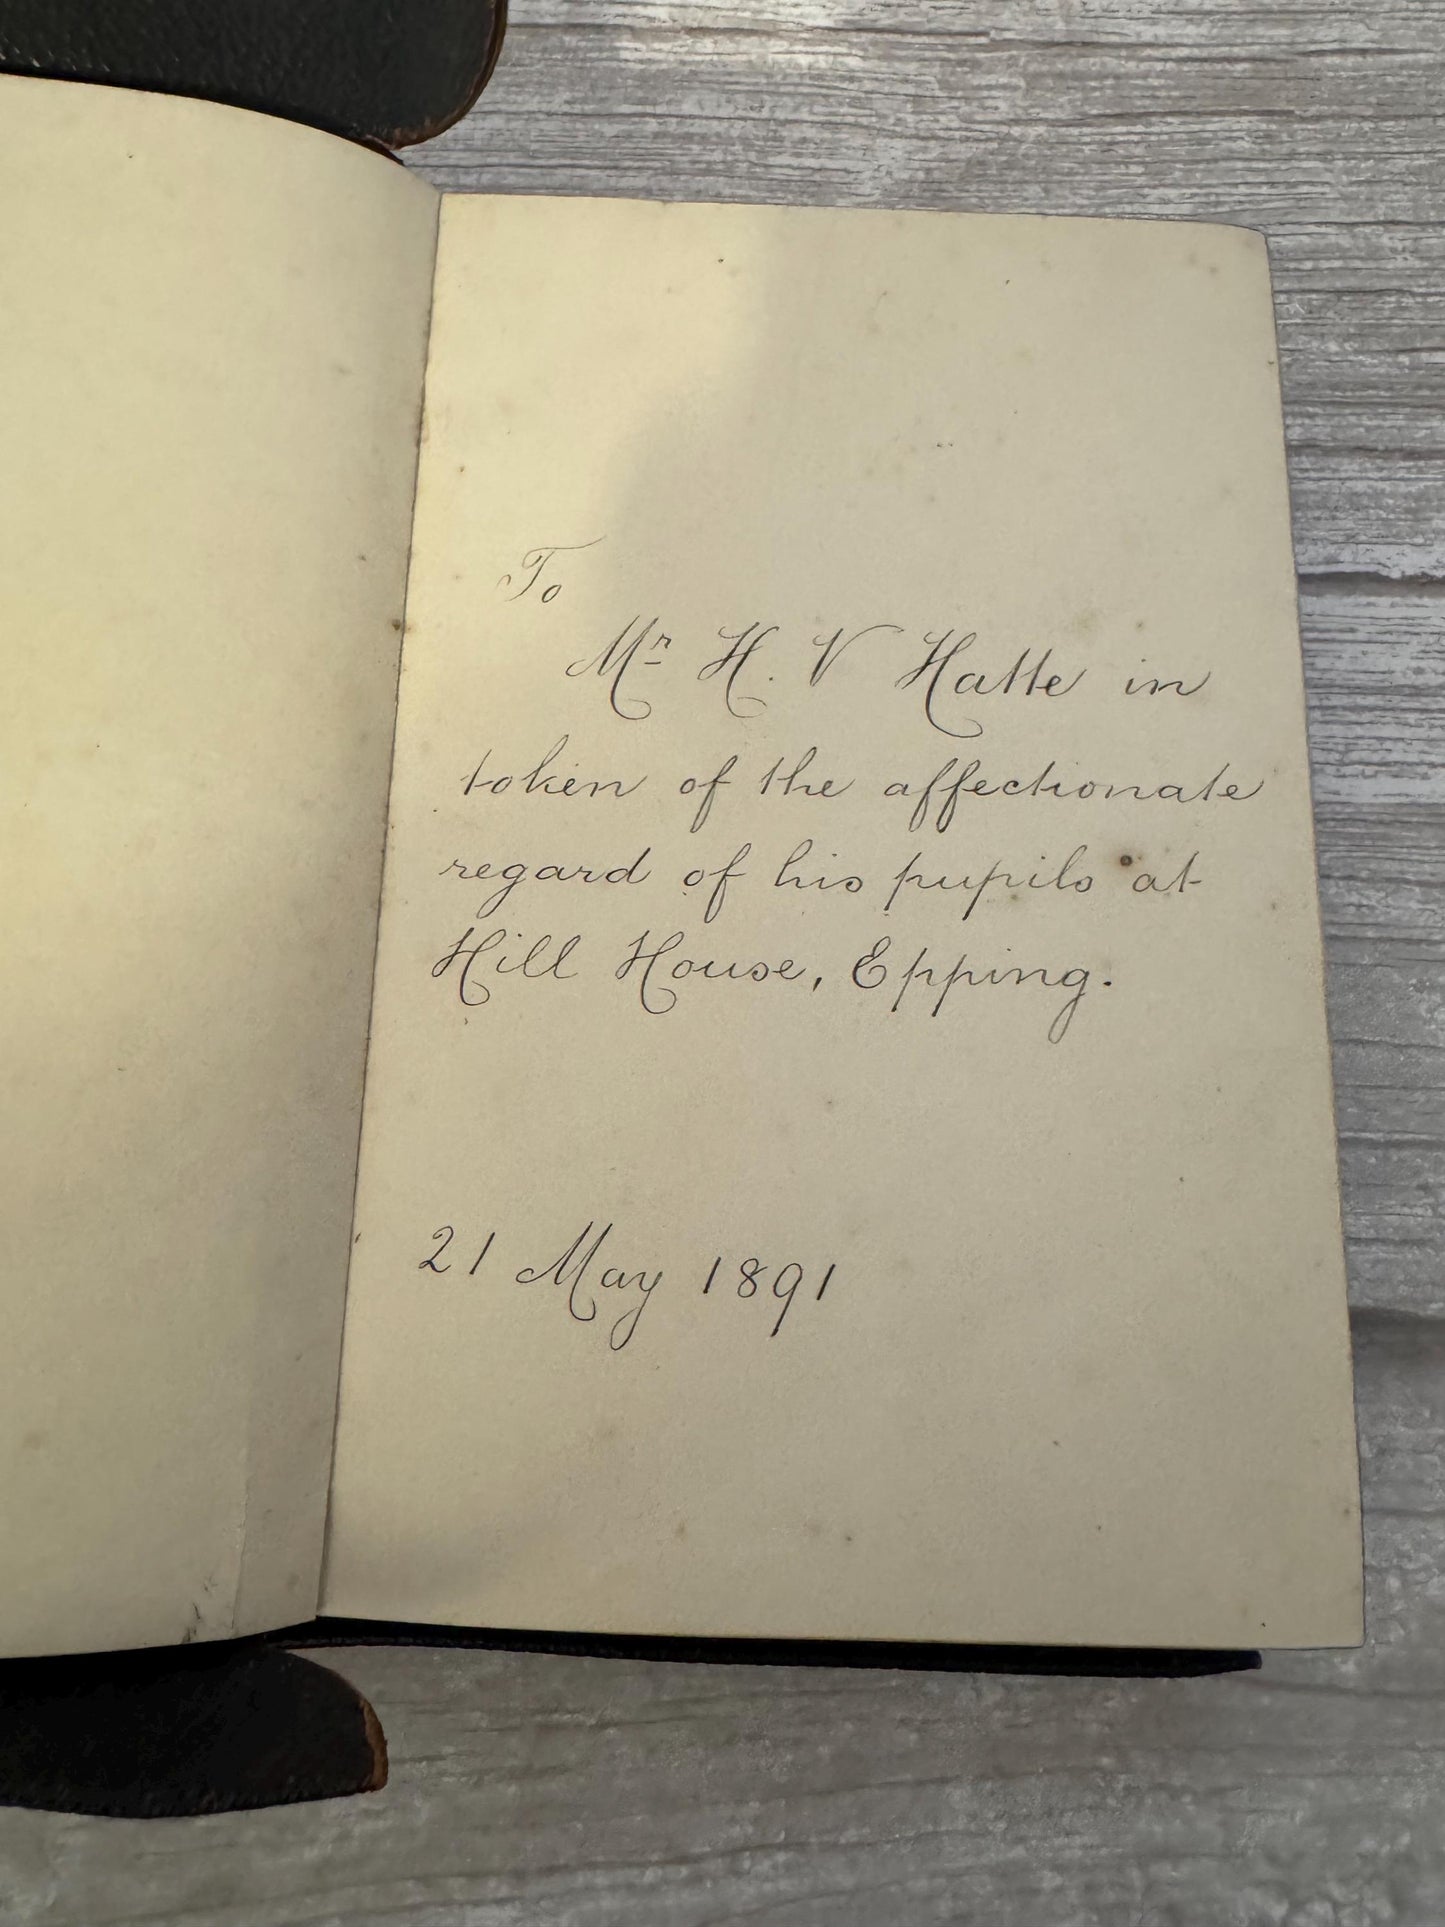 To
Mr H. V Hatte in
token of the affectionate
regard of his pupils at
Hill House, Epping.
21 May 1891